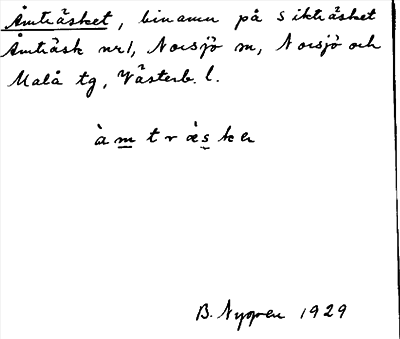 Åmträsket, binamn på Sikträsket
Åmträsk nr 1, Norsjö sn, Norsjö och
Malå tg, Västerb. l.
àmtræ̀sker
B. Nygren 1929